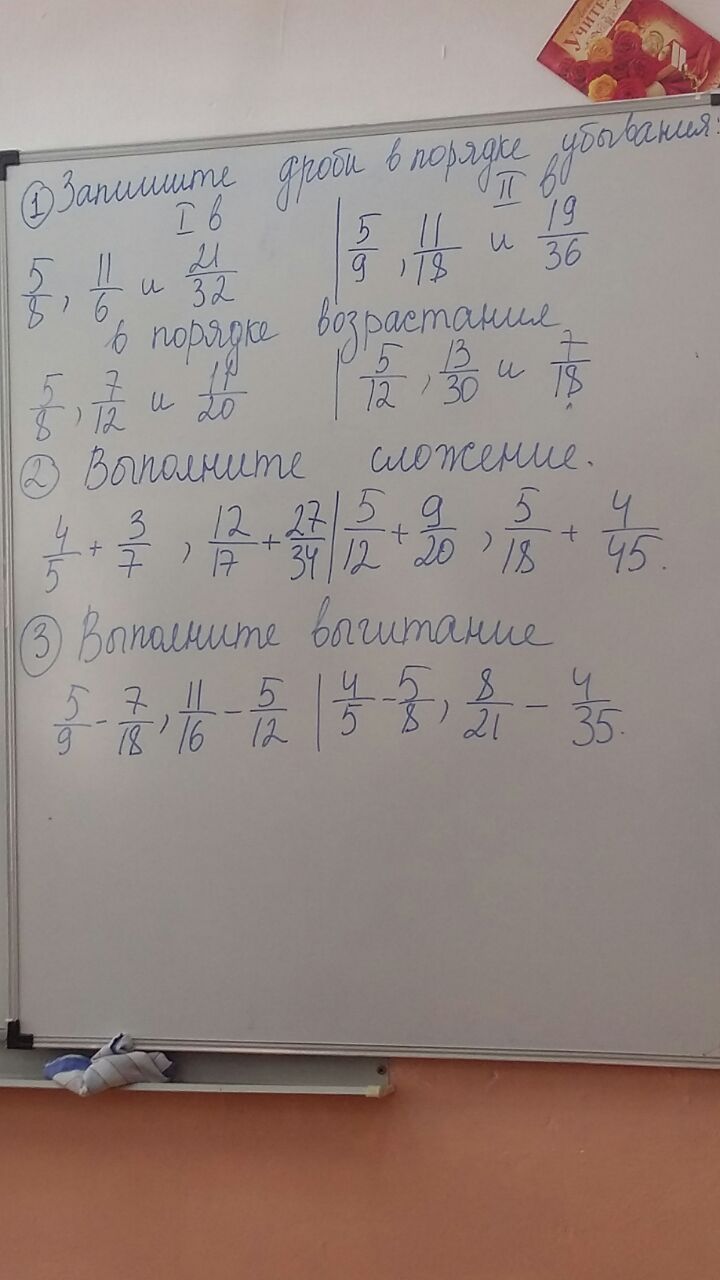 Учит
① Запишите дроби в порядке убывания:
I в II в
5/8, 11/6 и 21/32 | 5/9, 11/18 и 19/36
в порядке возрастания
5/8, 7/12 и 11/20 | 5/12, 13/30 и 7/18
② Выполните сложение.
4/5 + 3/7, 12/17 + 27/34 | 5/12 + 9/20, 5/18 + 4/45.
③ Выполните вычитание
5/9 - 7/18, 11/16 - 5/12 | 4/5 - 5/8, 8/21 - 4/35.